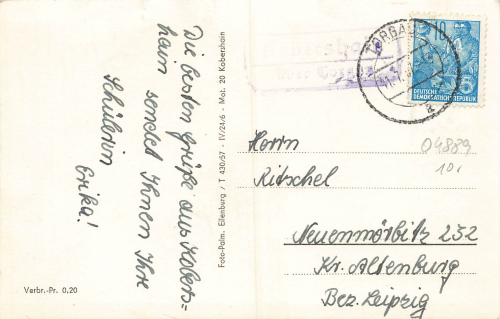 Die besten Grüße aus Kobers-
hain sendet Ihnen Ihre
Schülerin
Erika!
Foto-Palm. Eilenburg / T 430/57 - IV/24/6 - Mot. 20 Kobershain
Verbr.-Pr. 0,20
Kobershain
über Torgau
TORGAU
10
DEUTSCHE
DEMOKRATISCHE REPUBLIK
04889
10,-
Herrn
Ritschel
Neuenmörbitz 252
Kr. Altenburg
Bez. Leipzig